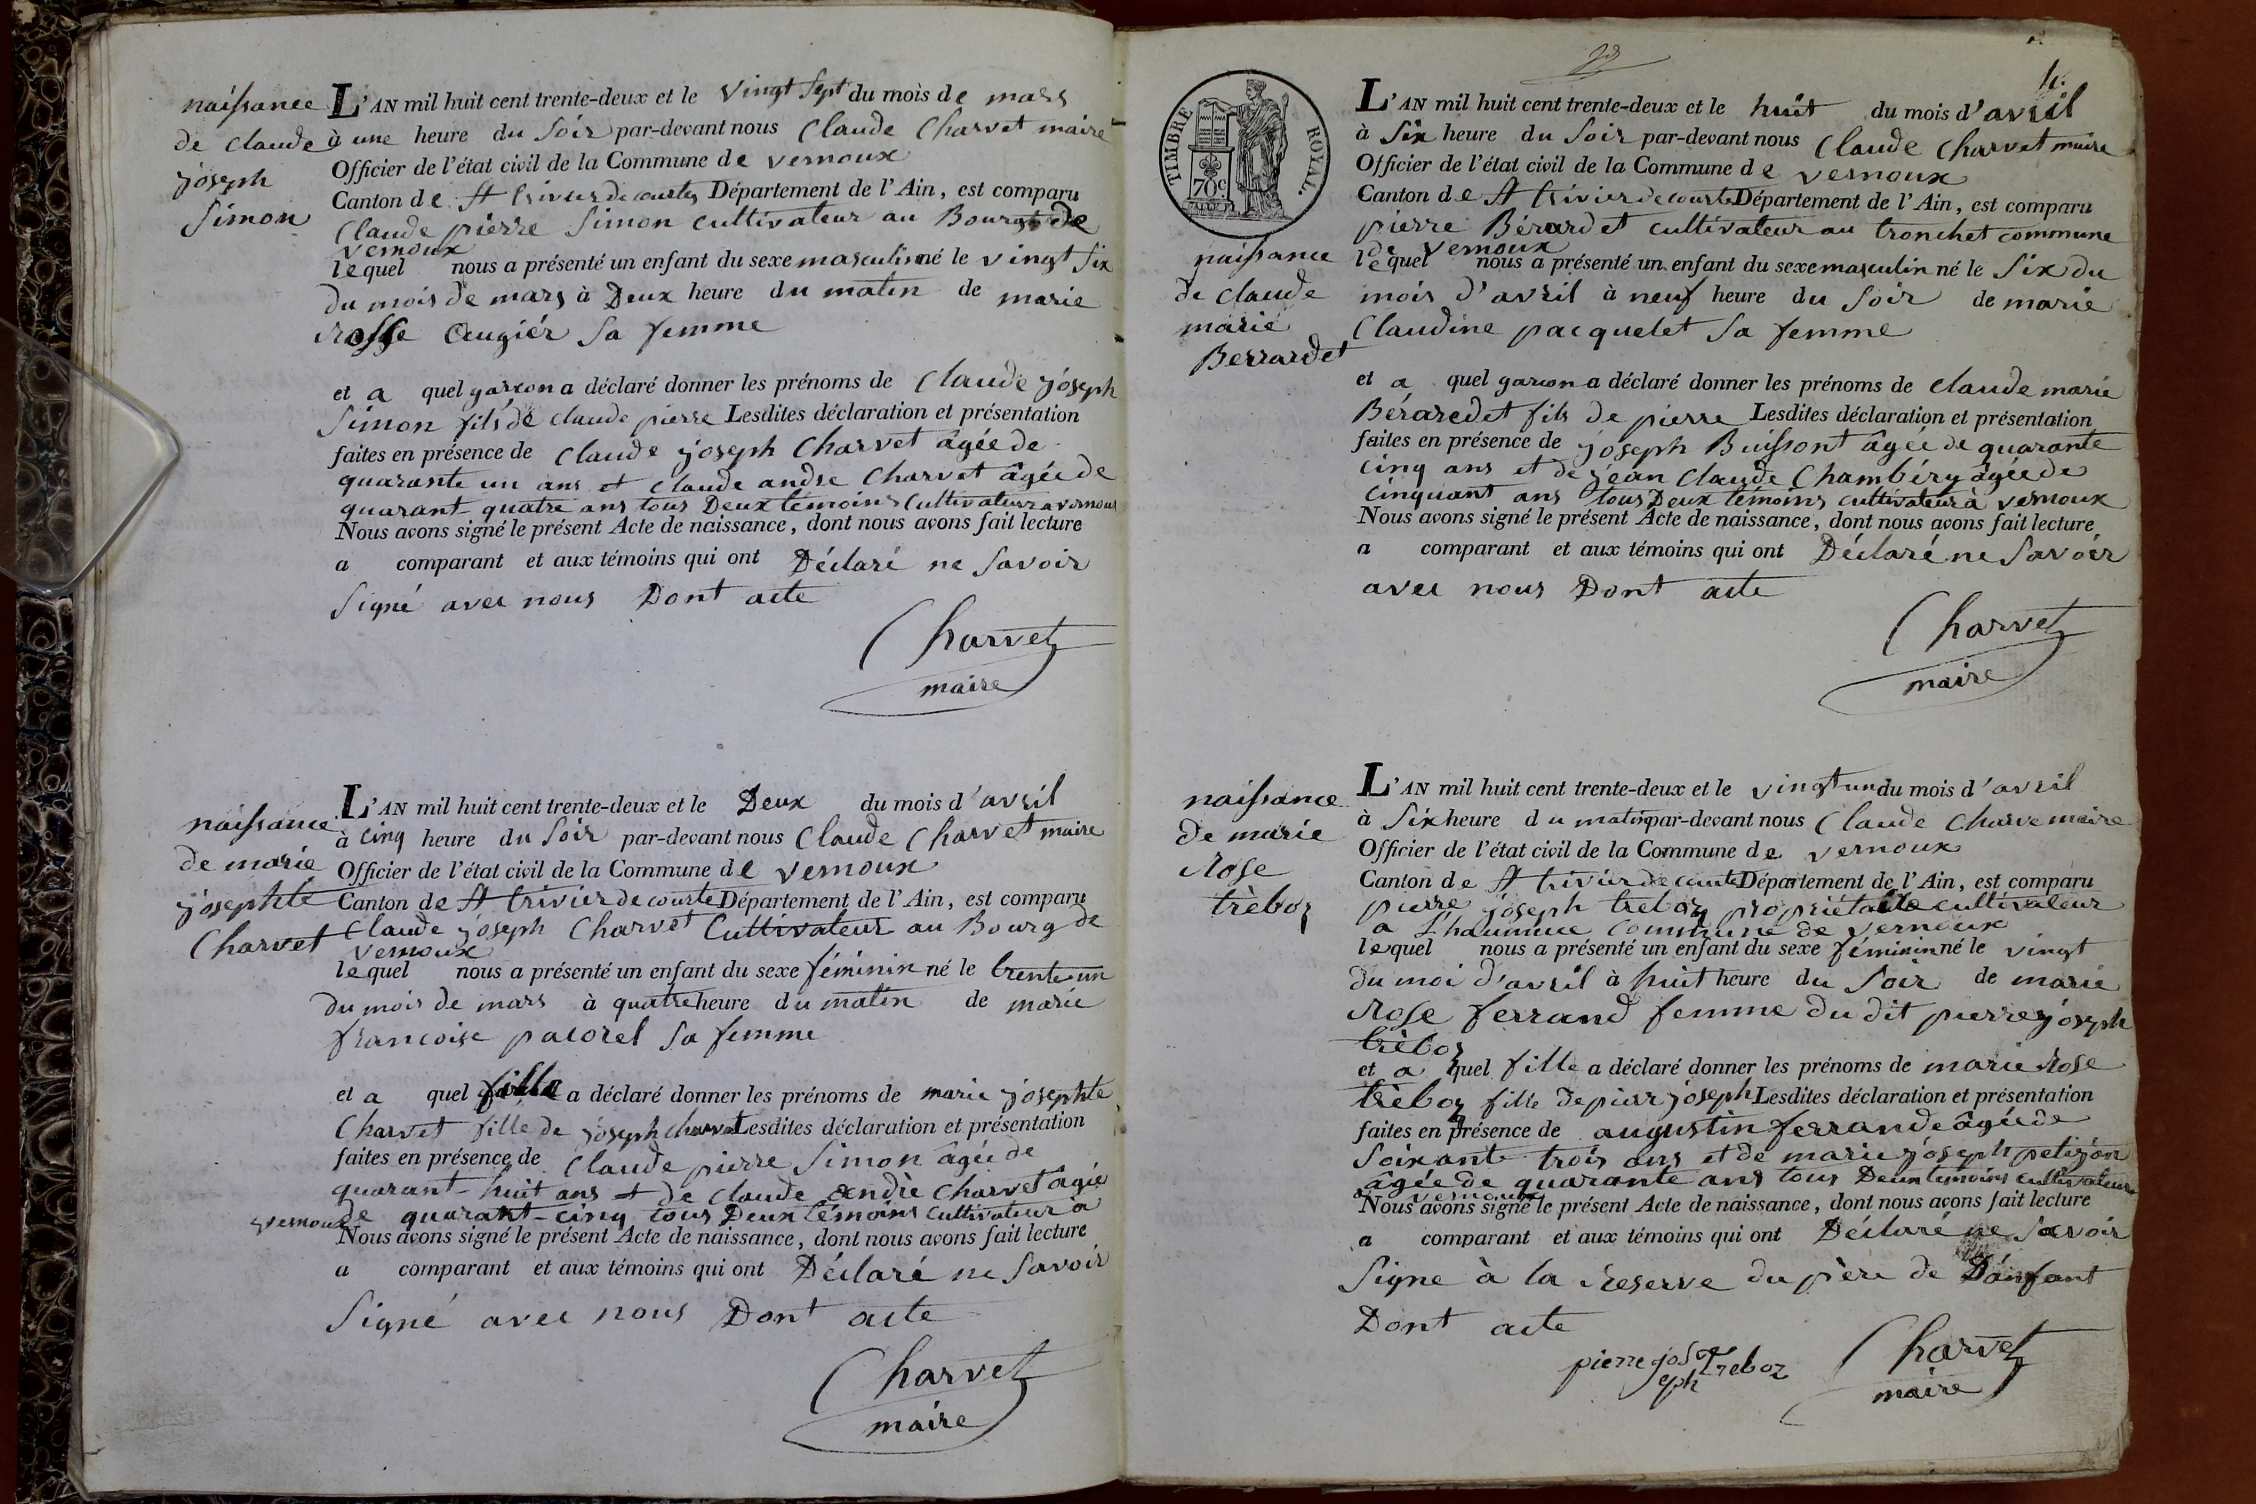 naissance
de claude
joseph
Simon
L'AN mil huit cent trente-deux et le vingt sept du mois de mars
à une heure du soir par-devant nous Claude Charvet maire
Officier de l'état civil de la Commune de vernoux
Canton de St trivier de courtes Département de l'Ain, est comparu
Claude pierre Simon cultivateur au Bourg de
vernoux
lequel nous a présenté un enfant du sexe masculin né le vingt six
du mois de mars à Deux heure du matin de marie
rosse Augiér sa femme
et a quel garcon a déclaré donner les prénoms de Claude joseph
Simon fils de claude pierre Lesdites déclaration et présentation
faites en présence de Claude joseph Charvet âgée de
quarante un ans et Claude andre Charvet âgée de
quarant quatre ans tous Deux témoins Cultivateur a vernoux
Nous avons signé le présent Acte de naissance, dont nous avons fait lecture
a comparant et aux témoins qui ont Déclaré ne Savoir
Signé avec nous Dont acte
Charvet
maire
naissance
de marie
josephte
Charvet
L'AN mil huit cent trente-deux et le Deux du mois d'avril
à cinq heure du Soir par-devant nous Claude Charvet maire
Officier de l'état civil de la Commune de vernoux
Canton de St trivier de courte Département de l'Ain, est comparu
Claude joseph Charvet Cultivateur au Bourg de
vernoux
lequel nous a présenté un enfant du sexe féminin né le trente un
du mois de mars à quatre heure du matin de marie
francoise pacorel sa femme
et a quel fille a déclaré donner les prénoms de marie josephte
Charvet fille de joseph charvet Lesdites déclaration et présentation
faites en présence de Claude pierre Simon âgée de
quarant huit ans et de claude andre Charvet âgée
de quarant-cinq tous Deux témoins cultivateur a
vernoux
Nous avons signé le présent Acte de naissance, dont nous avons fait lecture
a comparant et aux témoins qui ont Déclaré ne Savoir
Signé avec nous Dont acte
Charvet
maire
4.
TIMBRE ROYAL.
70c
naissance
de claude
marie
Berrardet
L'AN mil huit cent trente-deux et le huit du mois d'avril
à Six heure du Soir par-devant nous Claude Charvet maire
Officier de l'état civil de la Commune de vernoux
Canton de St trivier de courte Département de l'Ain, est comparu
pierre Bérardet cultivateur au tronchet commune
de vernoux
lequel nous a présenté un enfant du sexe masculin né le Six du
mois d'avril à neuf heure du Soir de marie
Claudine pacquelet Sa femme
et a quel garcon a déclaré donner les prénoms de claude marie
Béraredet fils de pierre Lesdites déclaration et présentation
faites en présence de joseph Buissont âgée de quarante
cinq ans et de jean Claude Chambéry âgée de
cinquant ans tous Deux témoins cultivateur à vernoux
Nous avons signé le présent Acte de naissance, dont nous avons fait lecture
a comparant et aux témoins qui ont Déclaré ne Savoir
avec nous Dont acte
Charvet
maire
naissance
de marie
Rose
trèboz
L'AN mil huit cent trente-deux et le vingt un du mois d'avril
à Six heure du matin par-devant nous Claude Charve maire
Officier de l'état civil de la Commune de vernoux
Canton de St trivier de courte Département de l'Ain, est comparu
pierre joseph treboz propriétaire cultivateur
a Commune de vernoux
lequel nous a présenté un enfant du sexe féminin né le vingt
du moi d'avril à huit heure du Soir de marie
Rose ferrand femme du dit pierre joseph
trèboz
et a quel fille a déclaré donner les prénoms de marie Rose
trèboz fille de pierr joseph Lesdites déclaration et présentation
faites en présence de augustin ferrande âgée de
Soixante trois ans et de marie joseph petijon
âgée de quarante ans tous Deux témoins cultivateur
a vernoux
Nous avons signé le présent Acte de naissance, dont nous avons fait lecture
a comparant et aux témoins qui ont Déclaré ne Savoir
Signe à la reserve du père de Dánfant
Dont acte
pierre joseph Treboz
Charvet
maire